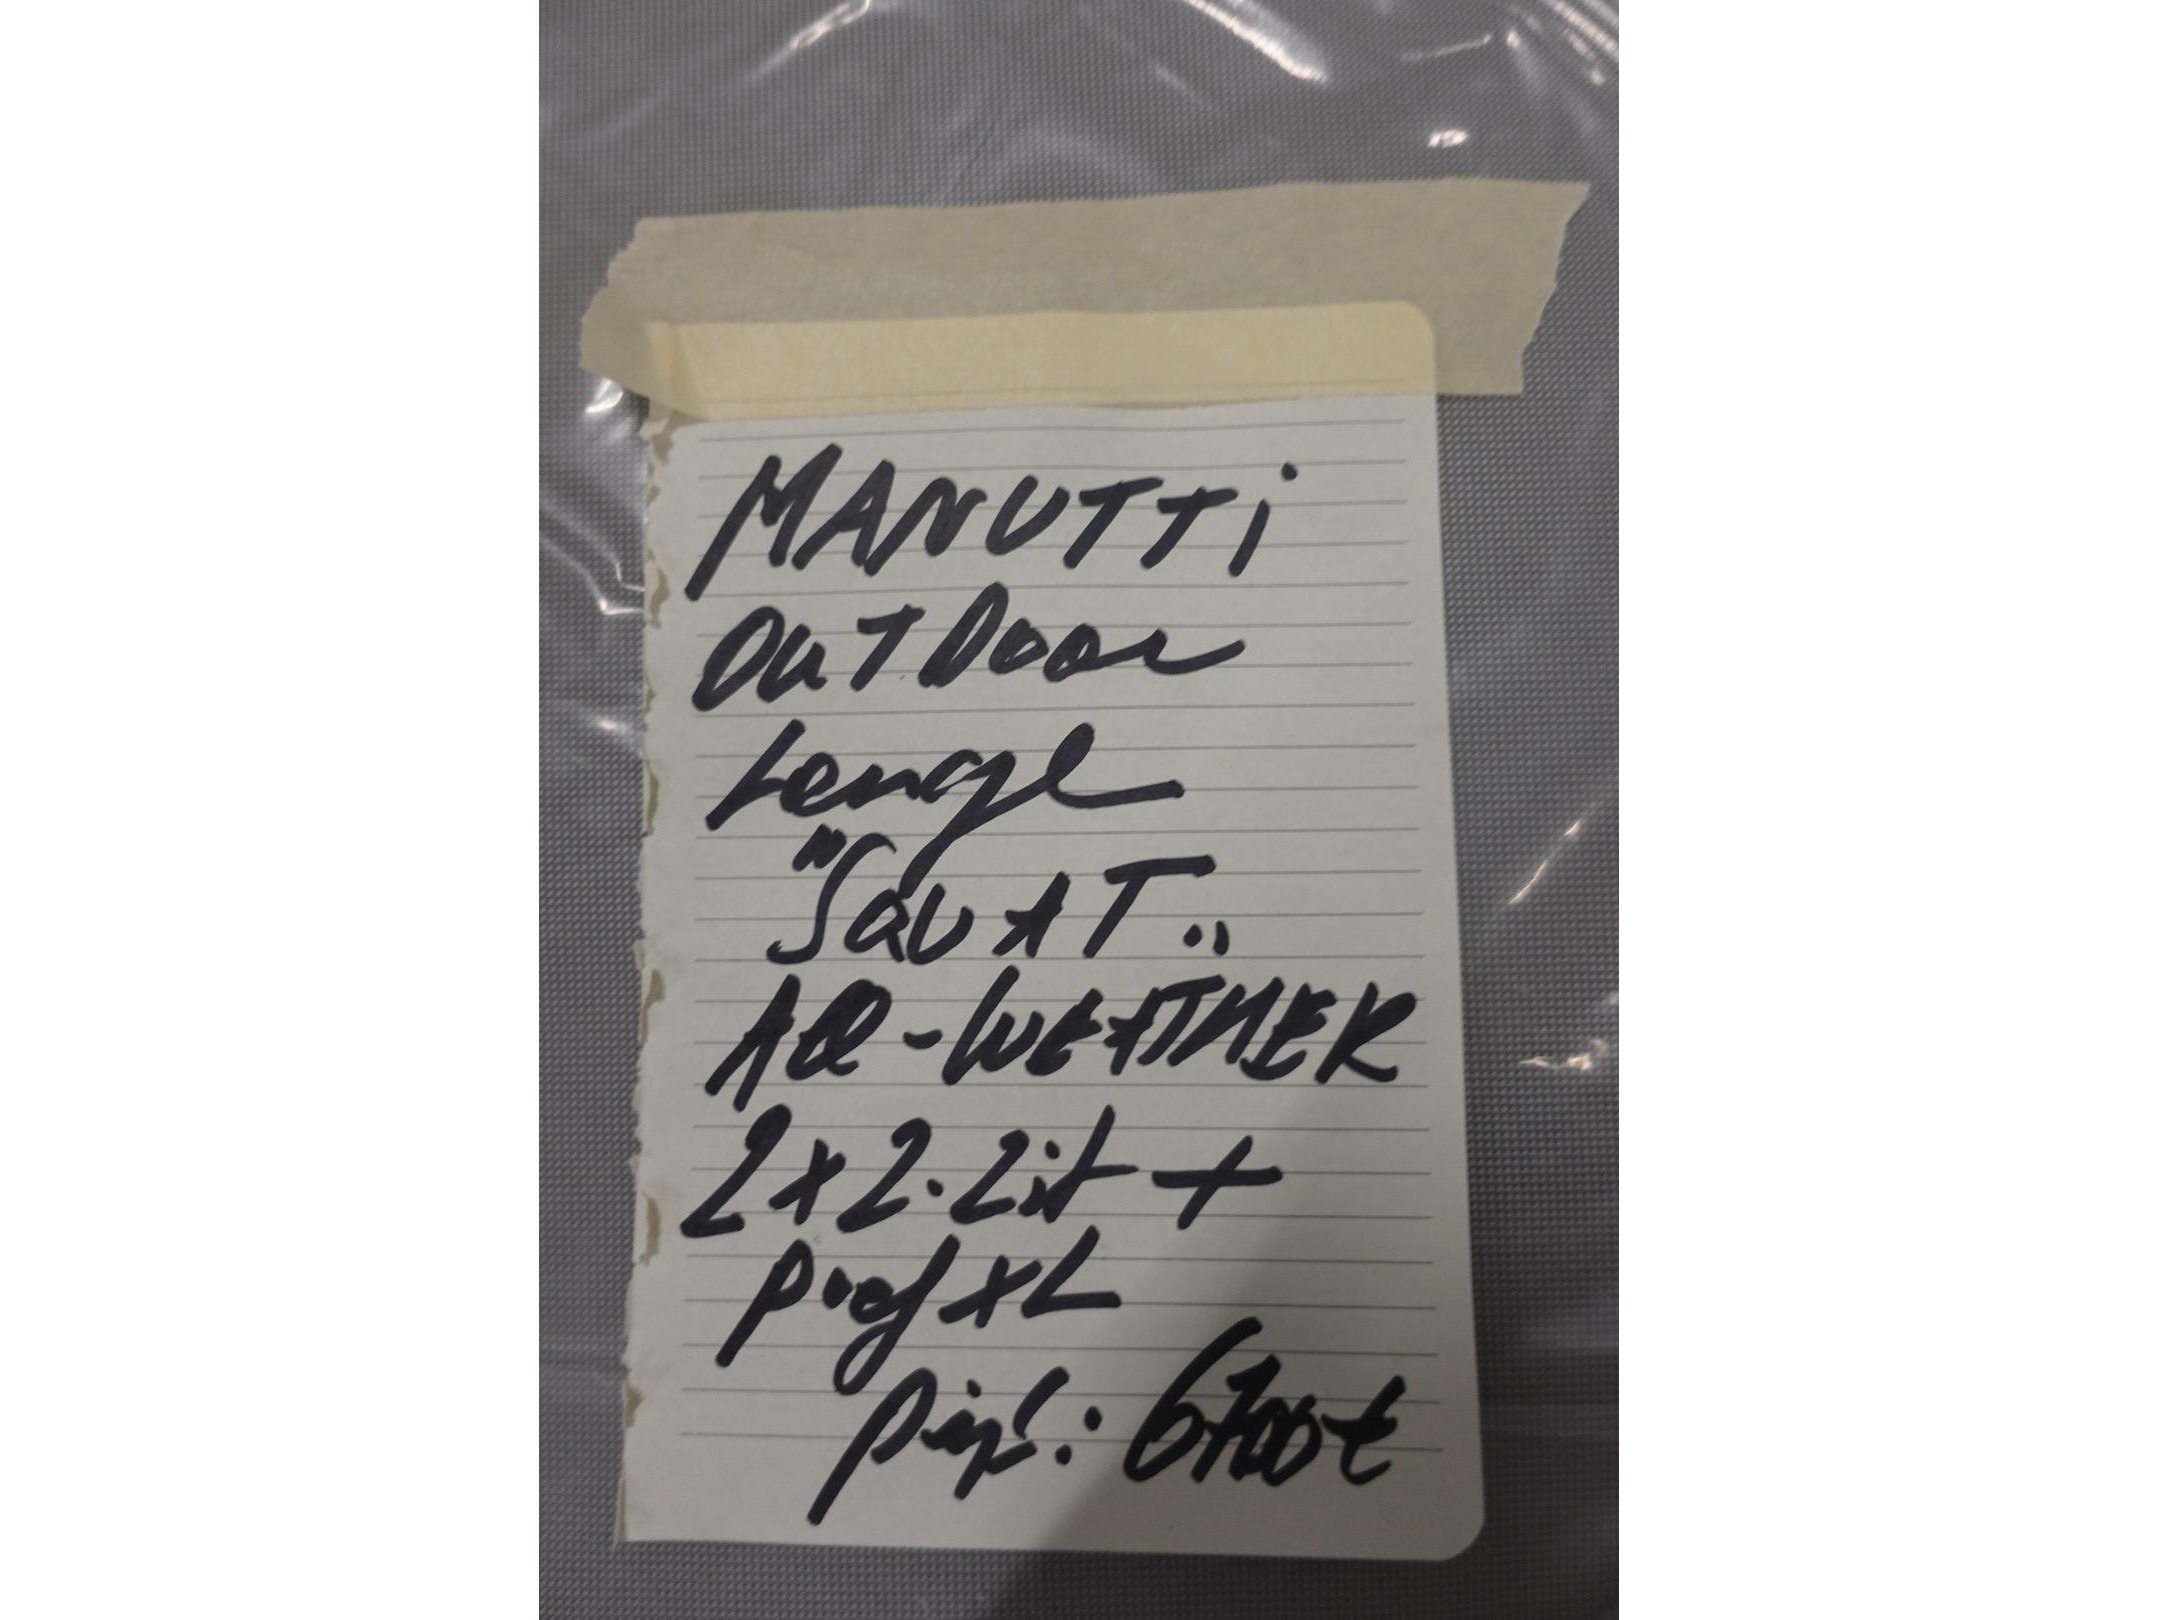 MANUTTi
OUTDoor
Lounge
"SQUAT"
All-WEATHER
2x2.Zit +
Poef XL